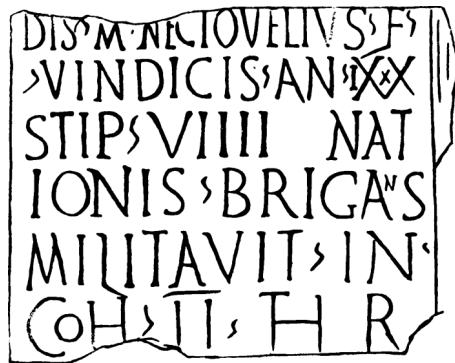 DIS·M·NECTOVELIVS·F·
·VINDICIS·AN·IXXX
STIP·VIIII NAT
IONIS·BRIGANS
MILITAVIT·IN·
COH·II·THR